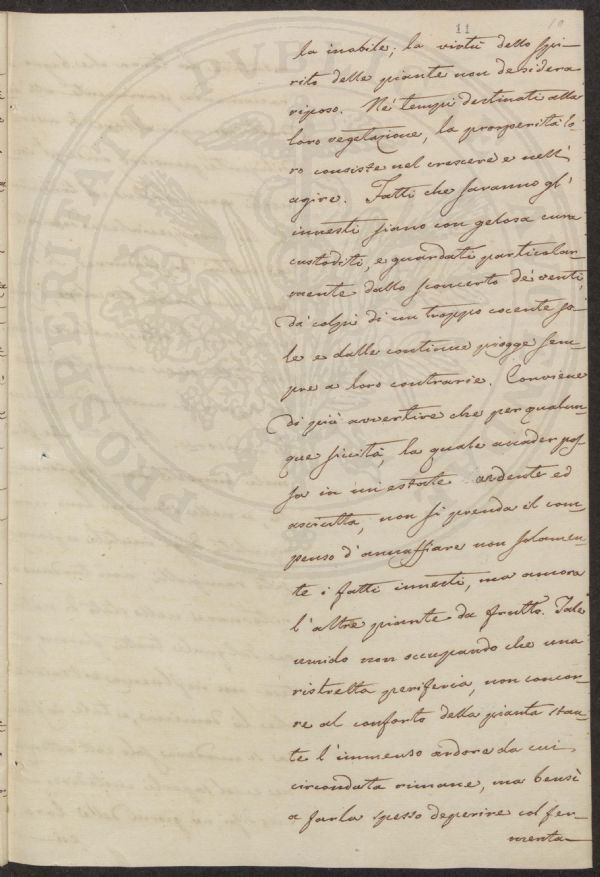 11
10
la inabile; la virtù dello Spi-
rito delle piante non desidera
riposo. Ne' tempi destinati alla
loro vegetazione, la prosperità lo-
ro consiste nel crescere e nell'
agire. Fatti che saranno gl'
innesti siano con gelosa cura
custoditi, e guardati particolar-
mente dallo sconcerto de' venti,
da' colpi di un troppo cocente So-
le e dalle continue piogge sem-
pre a loro contrarie. Conviene
di più avvertire che per qualun-
que siccità, la quale accader pos-
sa in un'estate ardente ed
asciutta, non si prenda il com-
penso d'annaffiare non solamen-
te i fatti innesti, ma ancora
l'altre piante da frutto. Tale
umido non occupando che una
ristretta periferia, non concor-
re al conforto della pianta stan-
te l'immenso ardore da cui
circondata rimane, ma bensì
a farla spesso deperire col fer-
menta-
PVBLI
PROSPERITATI